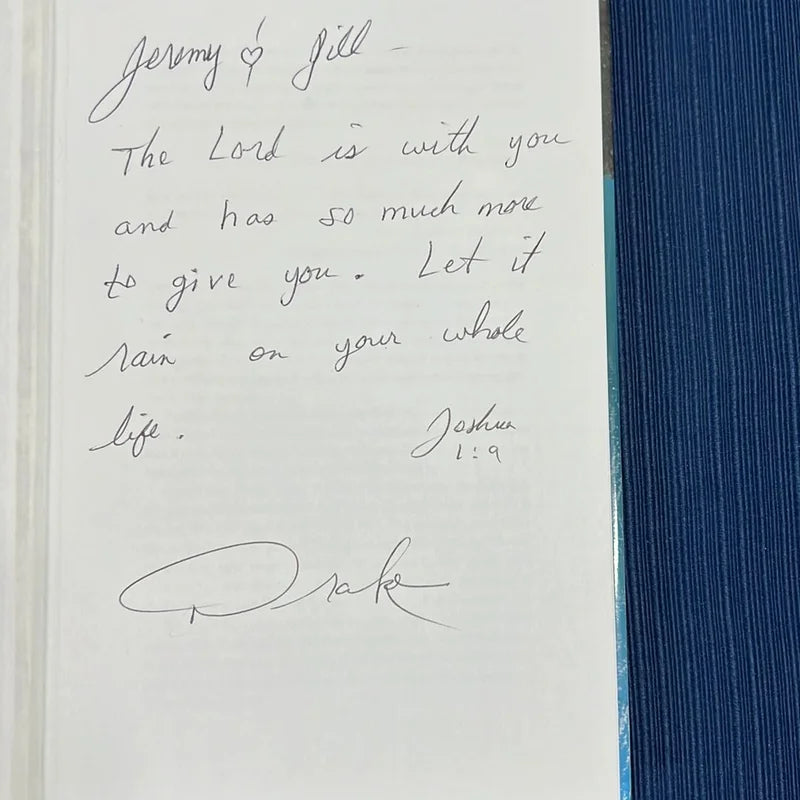 Jeremy & Jill –
The Lord is with you
and has so much more
to give you. Let it
rain on your whole
life. Joshua
1:9
Drake